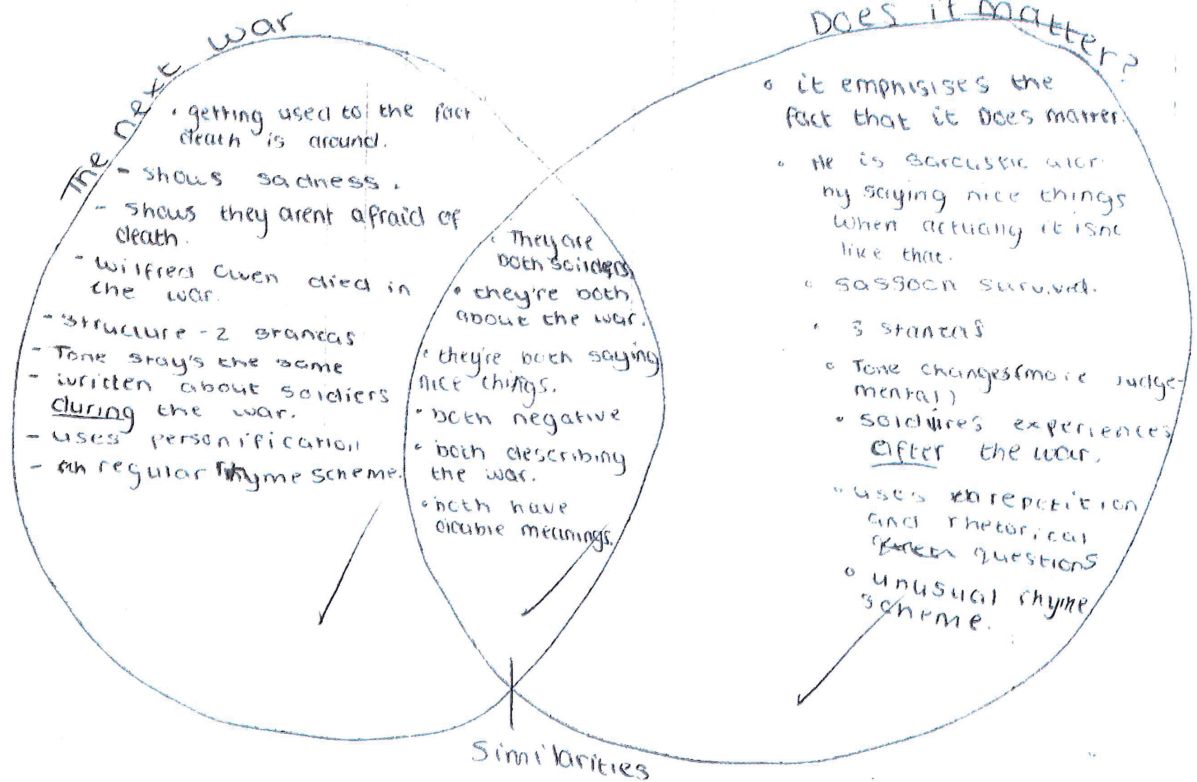 The next war
• getting used to the fact
death is around.
- shows sadness.
- shows they arent afraid of
death.
- Wilfred Owen died in
the war.
- Structure - 2 stanzas
- Tone stay's the same
- written about soldiers
during the war.
- uses personification
- regular rhyme scheme.
• They are
both soilders
• they're both
about the war.
• they're both saying
nice things.
• both negative
• both describing
the war.
• both have
double meanings.
Similarities
Does it matter?
• it emphisises the
fact that it Does matter.
• He is sarcustic
by saying nice things
when actually it isnt
like that.
• sassoon survived.
• 3 stanzas
• Tone changes (more judge-
mental)
• experiences
After the war.
• use's repetition
and rhetorical
questions
• unusual rhyme
scheme.